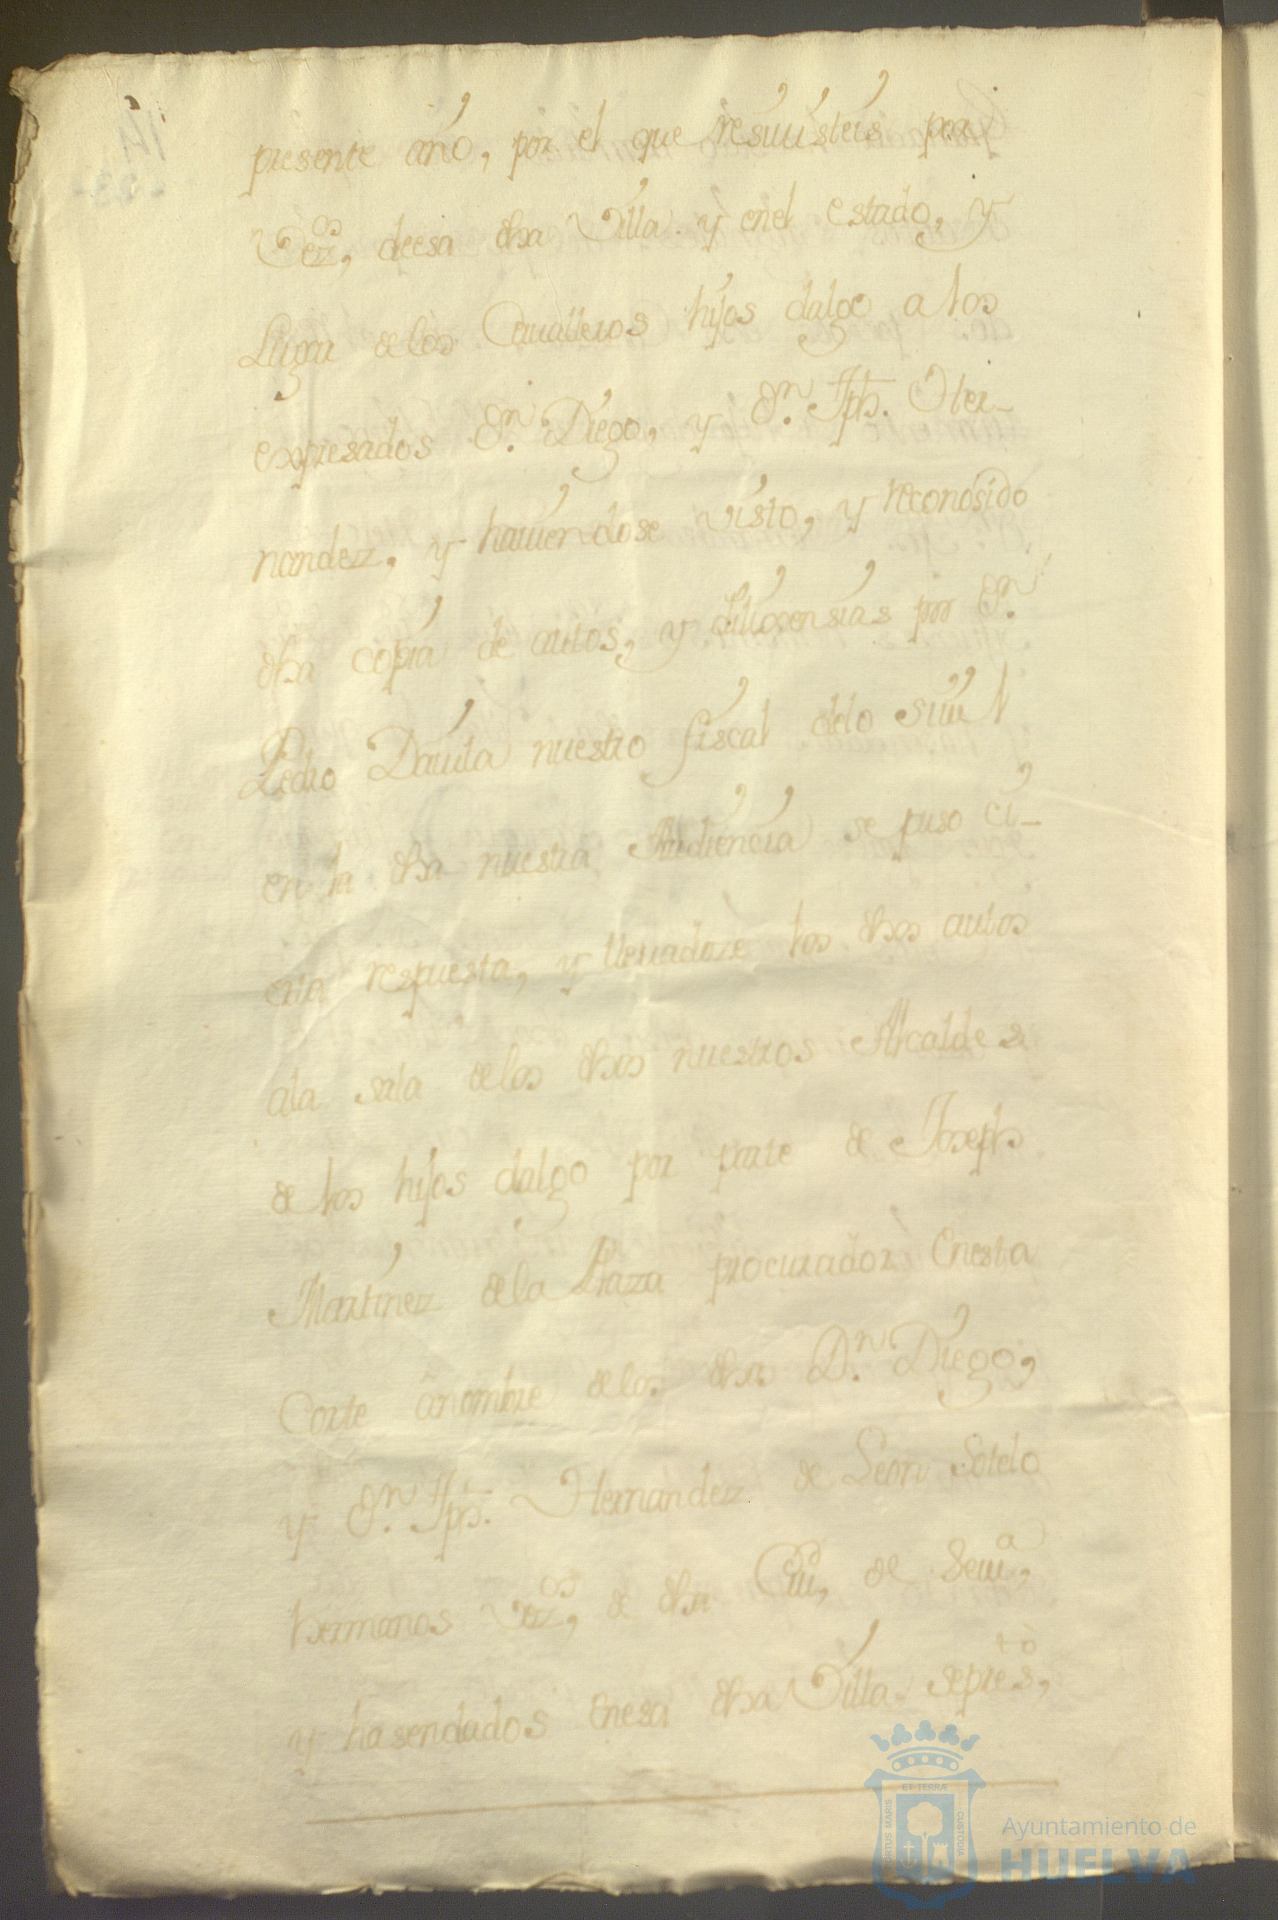 presente año, por el que resiuisteis por
Vez.os, deesa dha Villa y enel estado, y
Lugar delos Caualleros hijos dalgo a los
expresados Dn. Diego, y Dn. Jph. Her-
nandez, y hauiendose visto, y reconosido
dha copia de autos, y dilixensias por Dn.
Pedro Dauila nuestro fiscal delo siuil
en la dha nuestra Audiencia se puso ci-
erta respuesta, y lleuadoze los dhos autos
ala sala delos dhos nuestros Alcaldes
de los hijos dalgo por parte de Joseph
Martinez dela Plaza procurador enesta
Corte ânombre delos dhos Dn. Diego,
y Dn. Jph. Hernandez de Leon Sotelo
hermanos Vez.os, de dha Ciu.d, de Seui.a,
y hasendados enesa dha Villa sepres.to,
ET TERRÆ
PORTUS MARIS
CUSTODIA
Ayuntamiento de
HUELVA